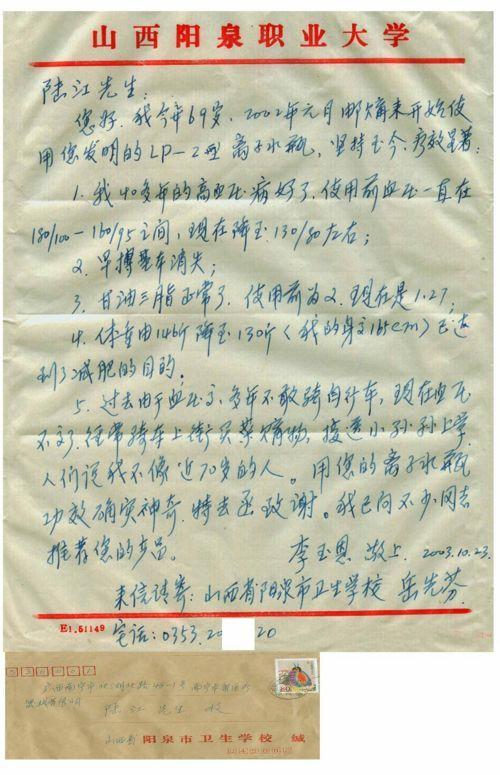 山西阳泉职业大学
陆江先生:
您好.我今年69岁,2002年元月邮购来开始使
用您发明的LP-2型离子水瓶,坚持至今,疗效显著:
1.我40多年的高血压病好了.使用前血压一直在
180/100-160/95之间,现在降至130/80左右;
2.早搏基本消失;
3.甘油三脂正常了.使用前为2.现在是1.27;
4.体重由146斤降至130斤(我的身高165cm)已达
到了减肥的目的.
5.过去由于血压高,多年不敢骑自行车,现在血压
不高了.经常骑车上街买菜购物,接送小孙孙上学.
人们说我不像近70岁的人。用您的离子水瓶
功效确实神奇.特去函致谢。我已向不少同志
推荐您的产品。
李玉恩 敬上.2003.10.23.
来信请寄:山西省阳泉市卫生学校 岳先芬.
电话:0353.20 20
E1.51149
广西南宁市 北路45-1号南宁市
陆江先生 收
山西省阳泉市卫生学校 缄